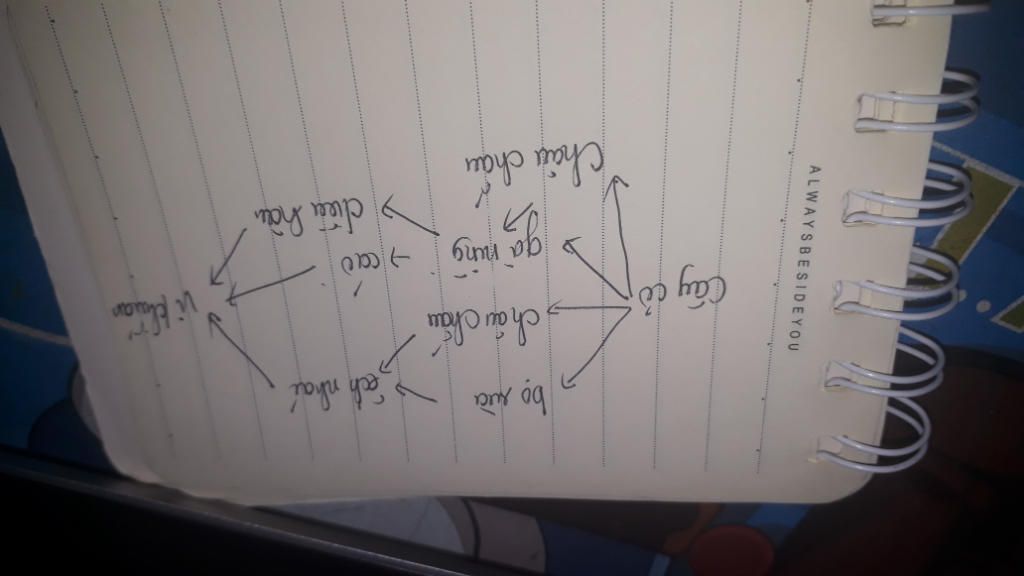 bọ rùa
ếch nhái
châu chấu
Cây cỏ
vi khuẩn
gà rừng
cáo
diều hâu
Châu chấu
ALWAYSBESIDEYOU